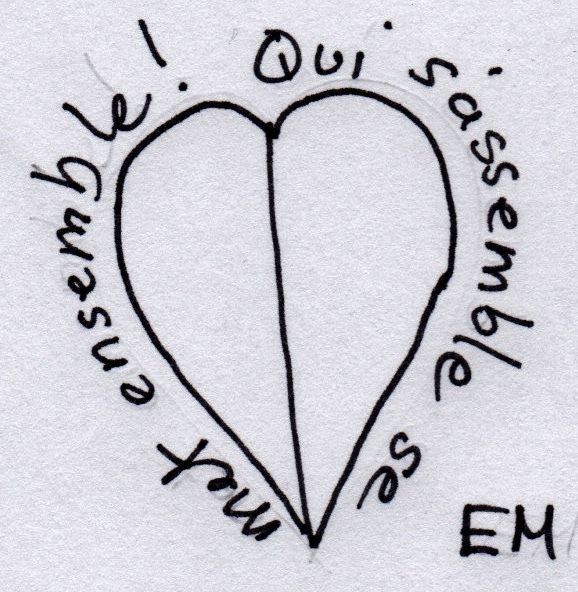 Qui s'assemble se met ensemble !
EM